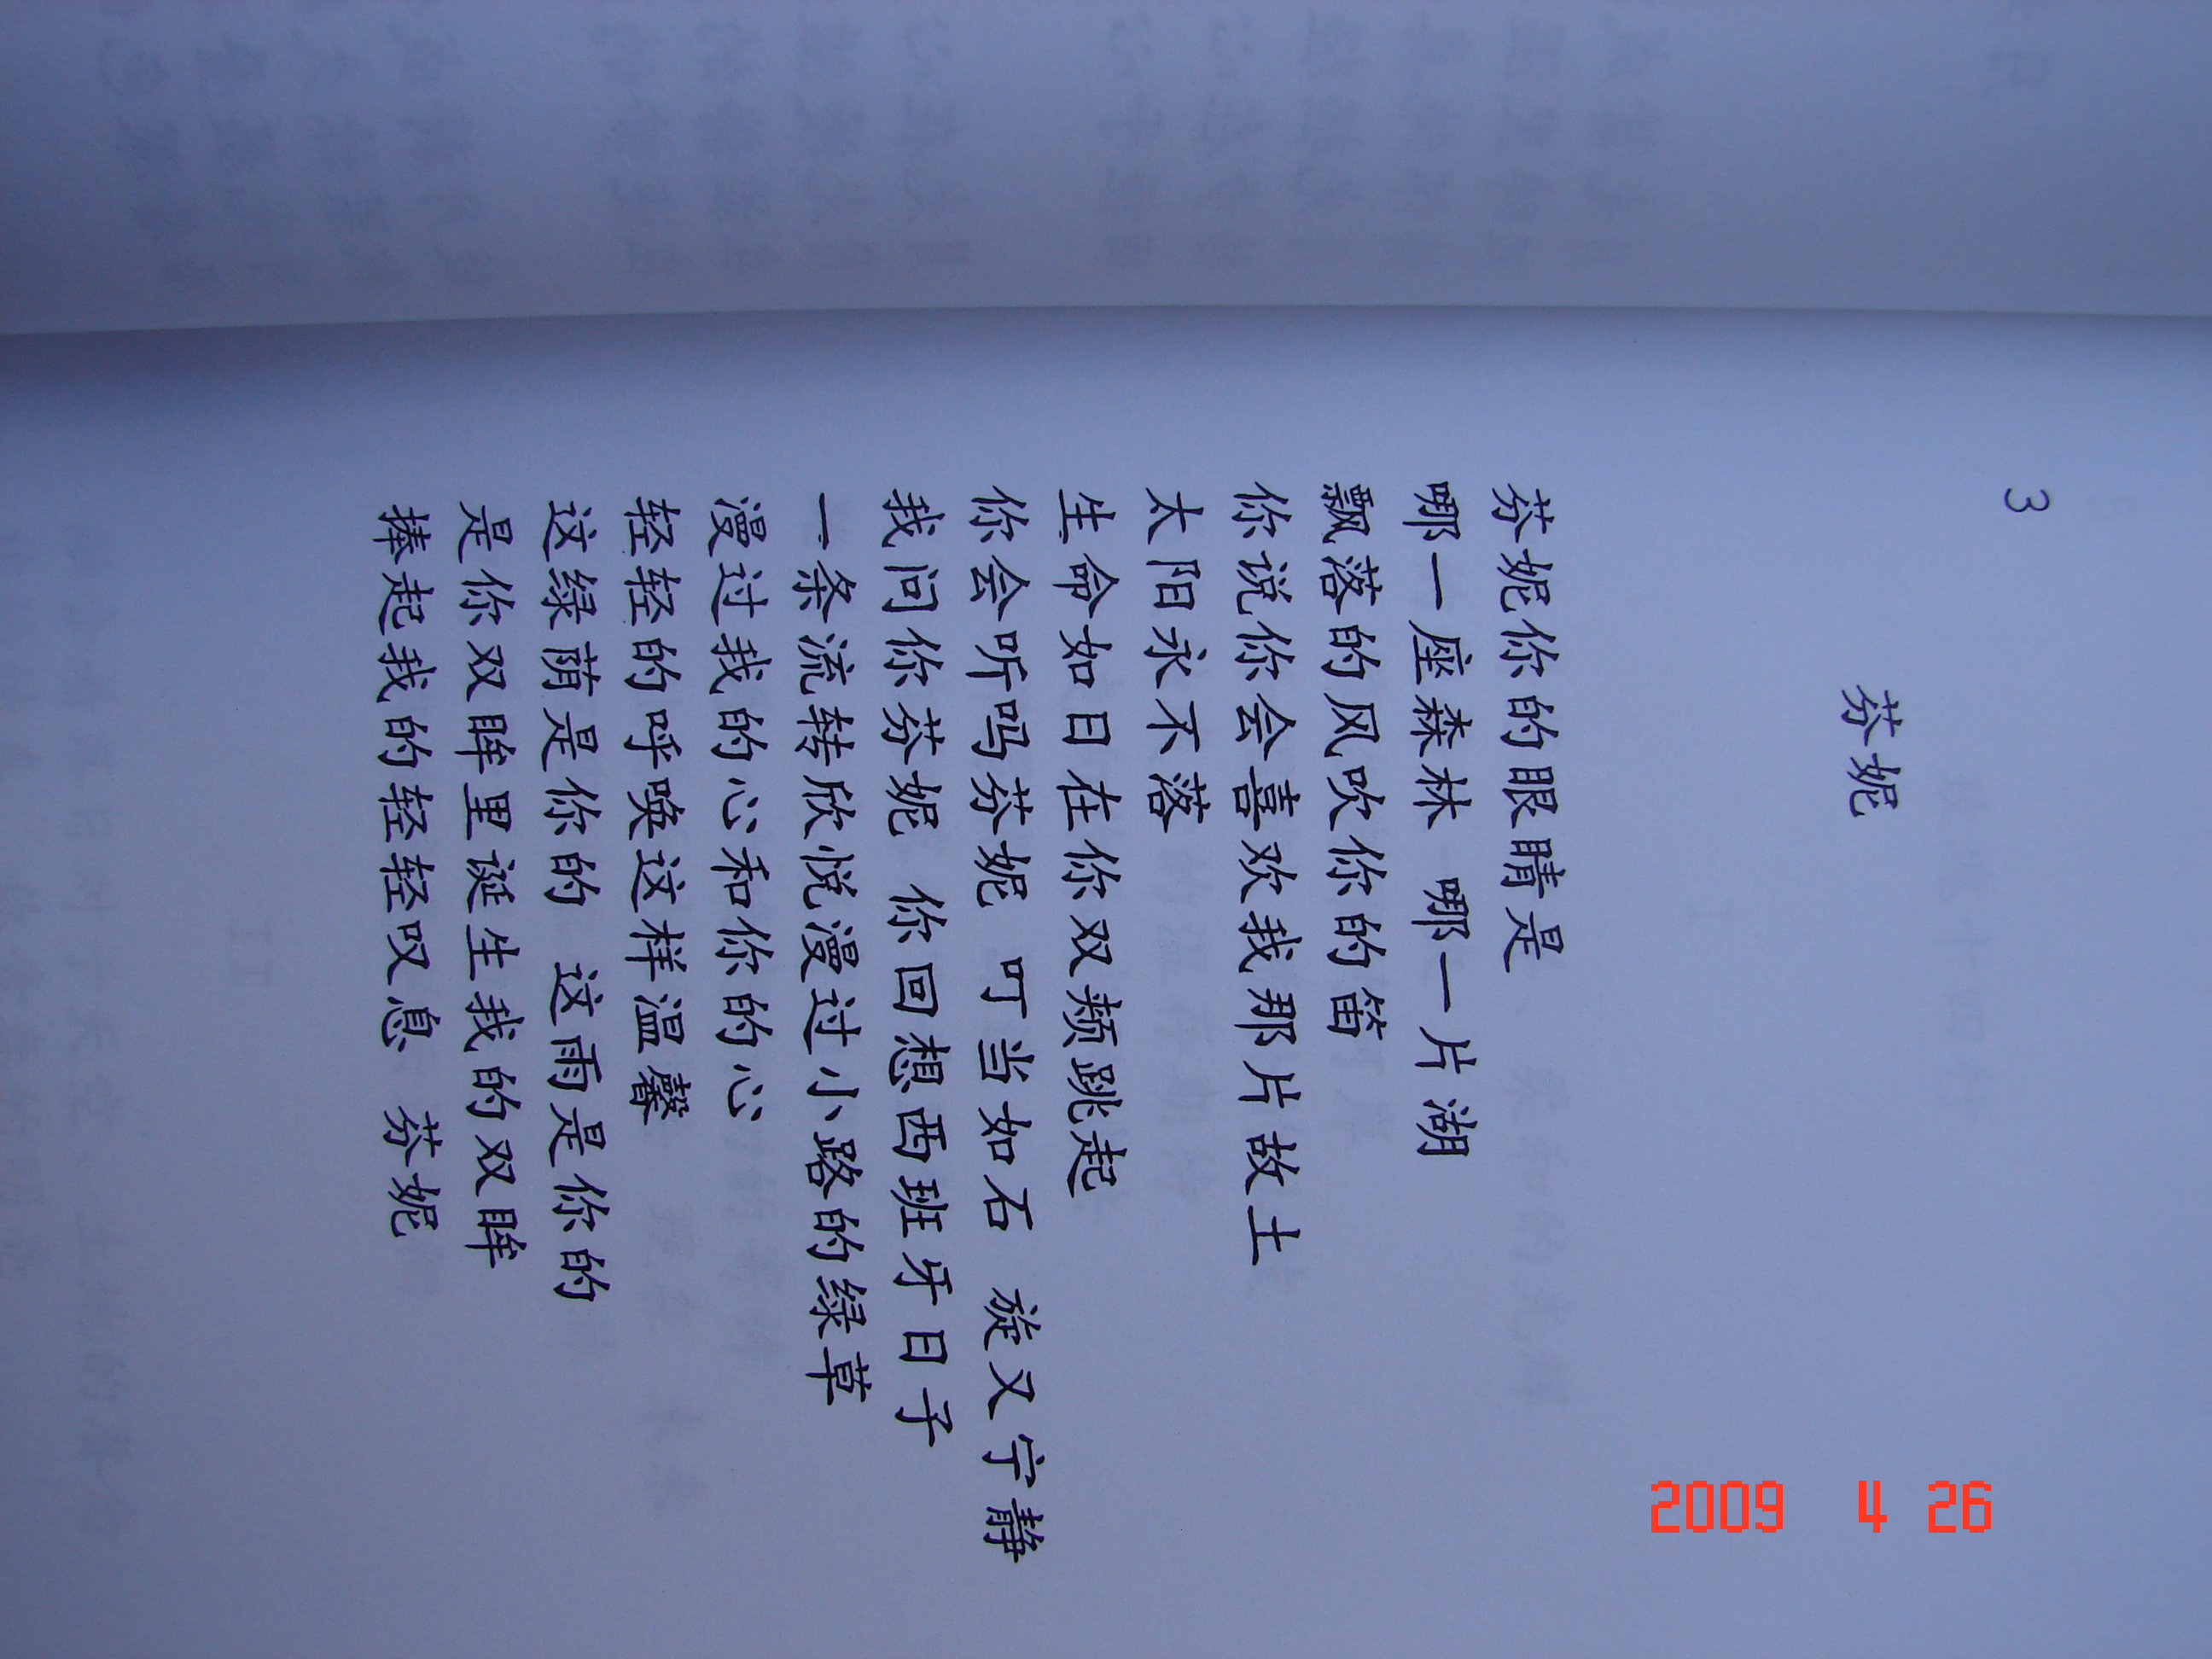 3
芬妮
芬妮你的眼睛是
哪一座森林 哪一片湖
飘落的风吹你的笛
你说你会喜欢我那片故土
太阳永不落
生命如日在你双颊跳起
你会听吗芬妮 叮当如石 旋又宁静
我问你芬妮 你回想西班牙日子
一条流转欣悦漫过小路的绿草
漫过我的心和你的心
轻轻的呼唤这样温馨
这绿荫是你的 这雨是你的
是你双眸里诞生我的双眸
捧起我的轻轻叹息 芬妮
2009 4 26